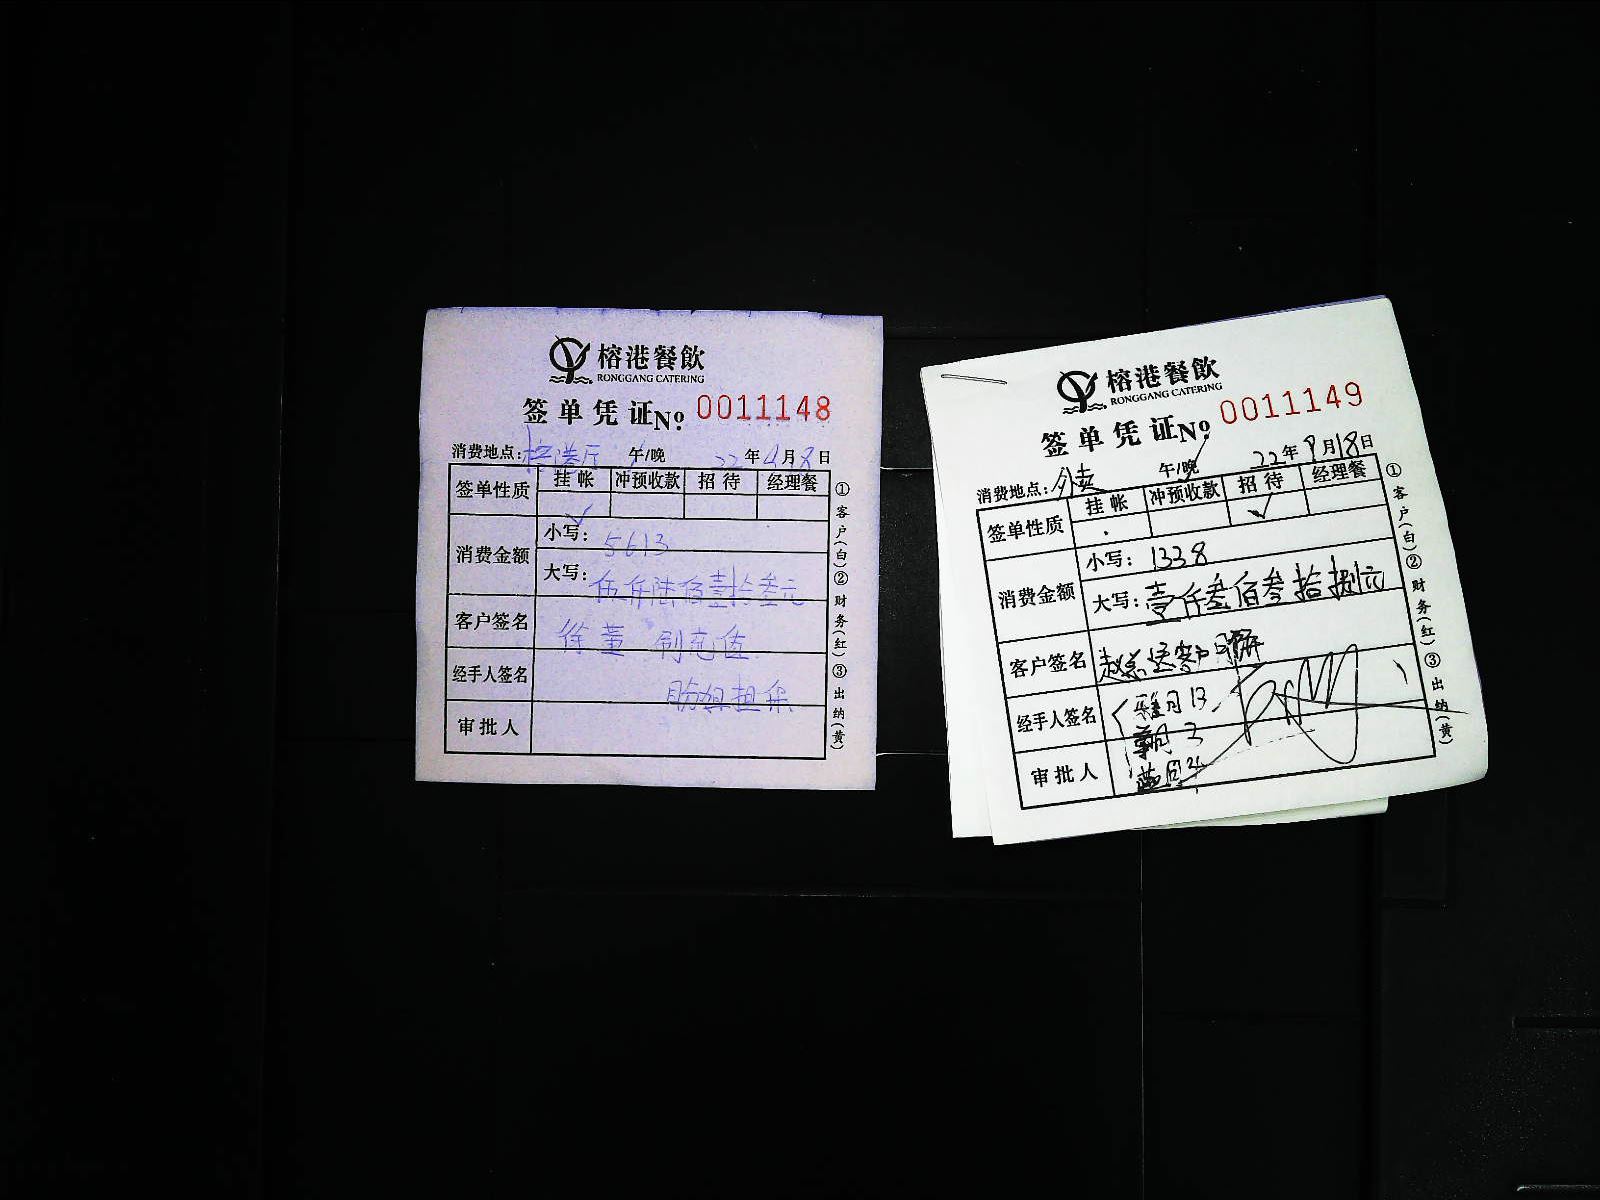 榕港餐飲
RONGGANG CATERING
签单凭证 № 0011148
消费地点：榕港厅 午/晚 22年 月8日
签单性质 挂帐 冲预收款 招待 经理餐
✓
消费金额 小写：5613
大写：伍仟陆佰壹拾叁元
客户签名 徐董
经手人签名 担保
审批人
①客户(白)②财务(红)③出纳(黄)
榕港餐飲
RONGGANG CATERING
签单凭证 № 0011149
消费地点：外卖 午/晚 22年9月18日
签单性质 挂帐 冲预收款 招待 经理餐
✓
消费金额 小写：1338
大写：壹仟叁佰叁拾捌元
客户签名 赵总送客户月饼
经手人签名
审批人
①客户(白)②财务(红)③出纳(黄)